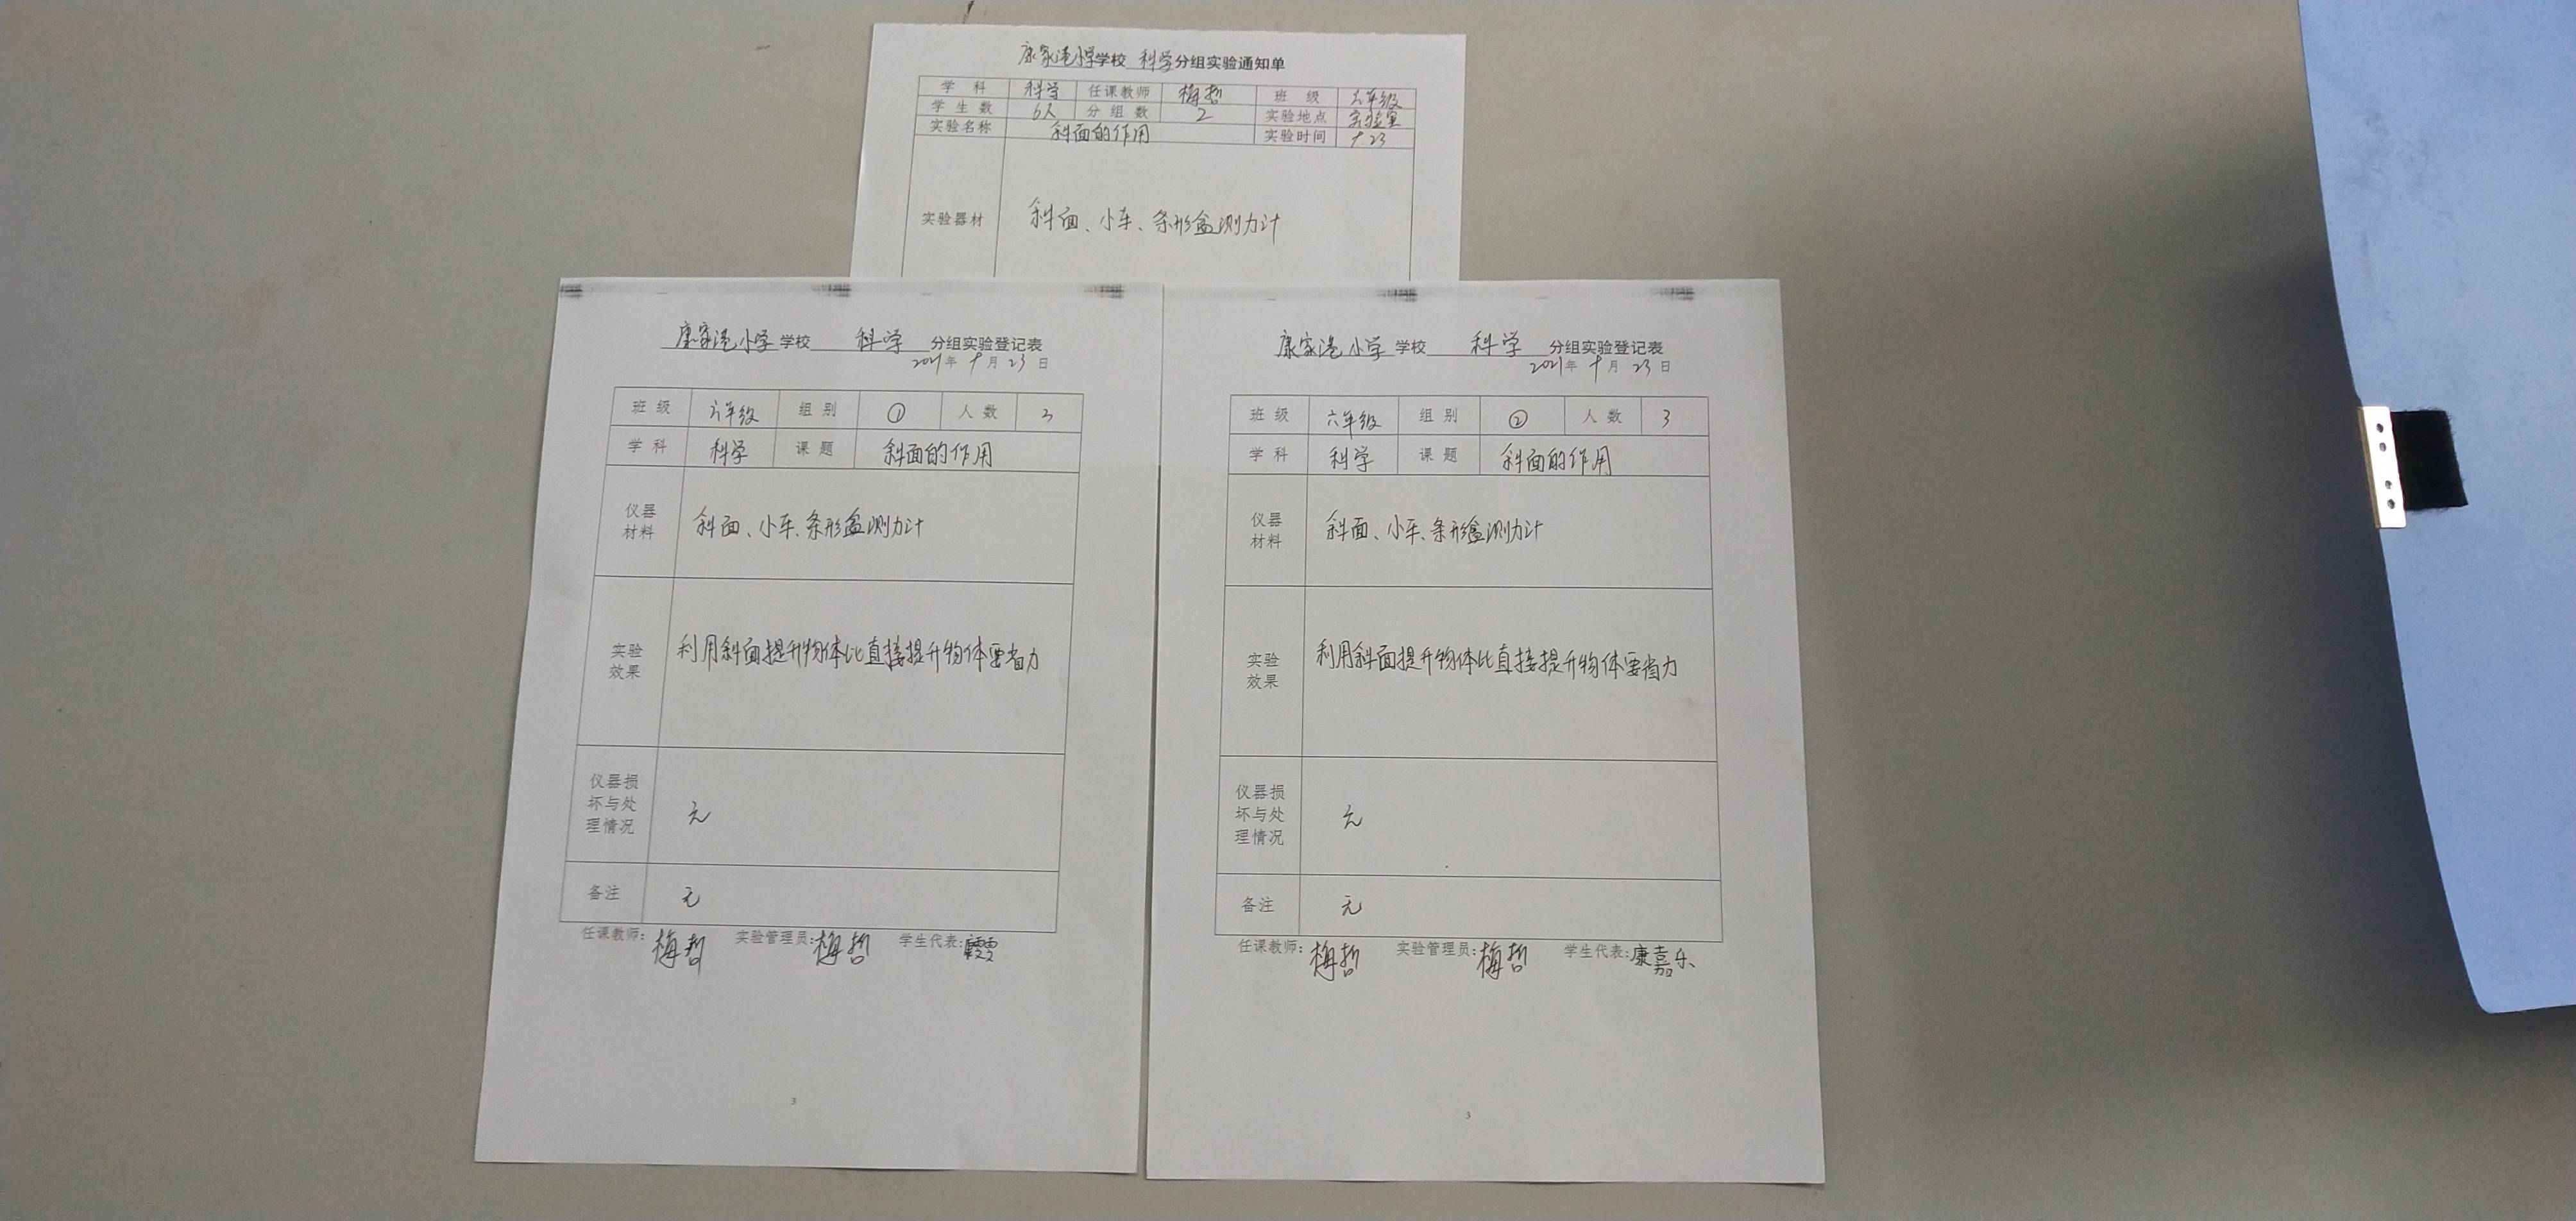 康家港小学学校 科学分组实验通知单
学 科 科学 任课教师 梅哲 班 级 六年级
学 生 数 6人 分 组 数 2 实验地点 实验室
实验名称 斜面的作用 实验时间 9.23
实验器材 斜面、小车、条形盒测力计
康家港小学学校 科学 分组实验登记表
2021年9月23日
班 级 六年级 组 别 ① 人 数 3
学 科 科学 课 题 斜面的作用
仪器
材料
斜面、小车、条形盒测力计
实验
效果
利用斜面提升物体比直接提升物体要省力
仪器损
坏与处
理情况
无
备注 无
任课教师:梅哲 实验管理员:梅哲 学生代表:
3
康家港小学学校 科学 分组实验登记表
2021年9月23日
班 级 六年级 组 别 ② 人 数 3
学 科 科学 课 题 斜面的作用
仪器
材料
斜面、小车、条形盒测力计
实验
效果
利用斜面提升物体比直接提升物体要省力
仪器损
坏与处
理情况
无
备注 无
任课教师:梅哲 实验管理员:梅哲 学生代表:康嘉乐
3